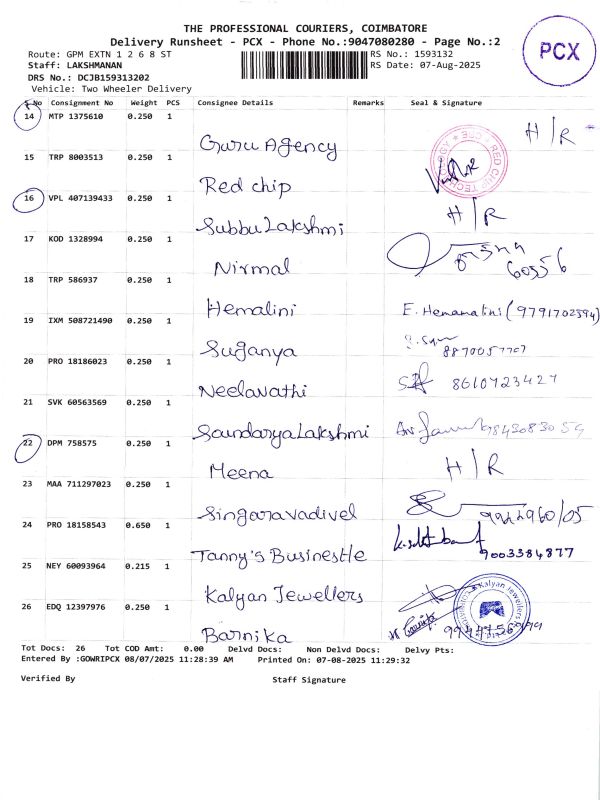 THE PROFESSIONAL COURIERS, COIMBATORE
Delivery Runsheet - PCX - Phone No.:9047080280 - Page No.:2
PCX
Route: GPM EXTN 1 2 6 8 ST
RS No.: 1593132
Staff: LAKSHMANAN
RS Date: 07-Aug-2025
DRS No.: DCJB159313202
Vehicle: Two Wheeler Delivery
S No Consignment No Weight PCS Consignee Details Remarks Seal & Signature
14 MTP 1375610 0.250 1 Guru Agency H/R
15 TRP 8003513 0.250 1 Red chip
16 VPL 407139433 0.250 1 Subbu Lakshmi H/R
17 KOD 1328994 0.250 1 Nirmal 60556
18 TRP 586937 0.250 1 Hemalini E. Hemamalini (9791702394)
19 IXM 508721490 0.250 1 Suganya 8870057707
20 PRO 18186023 0.250 1 Neelavathi 8610723427
21 SVK 60563569 0.250 1 Saundarya Lakshmi
22 DPM 758575 0.250 1 Meena H/R
23 MAA 711297023 0.250 1 Singaravadivel
24 PRO 18158543 0.650 1 Tanny's Businestle 9003384877
25 NEY 60093964 0.215 1 Kalyan Jewellers Kalyan Jewellers
26 EDQ 12397976 0.250 1 Barnika
Tot Docs: 26 Tot COD Amt: 0.00 Delvd Docs: Non Delvd Docs: Delvy Pts:
Entered By :GOWRIPCX 08/07/2025 11:28:39 AM Printed On: 07-08-2025 11:29:32
Verified By Staff Signature